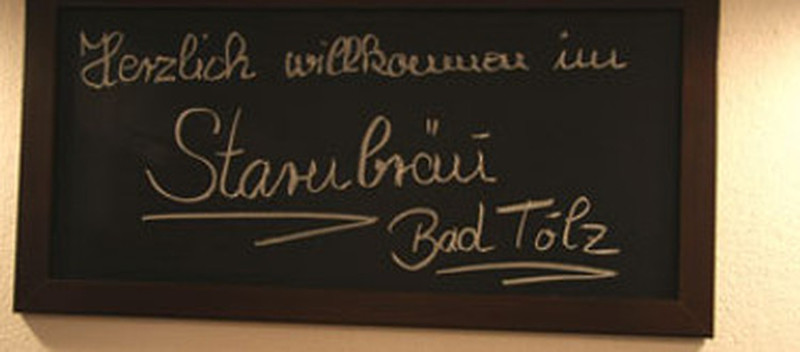 Herzlich willkommen im
Starnbräu
Bad Tölz